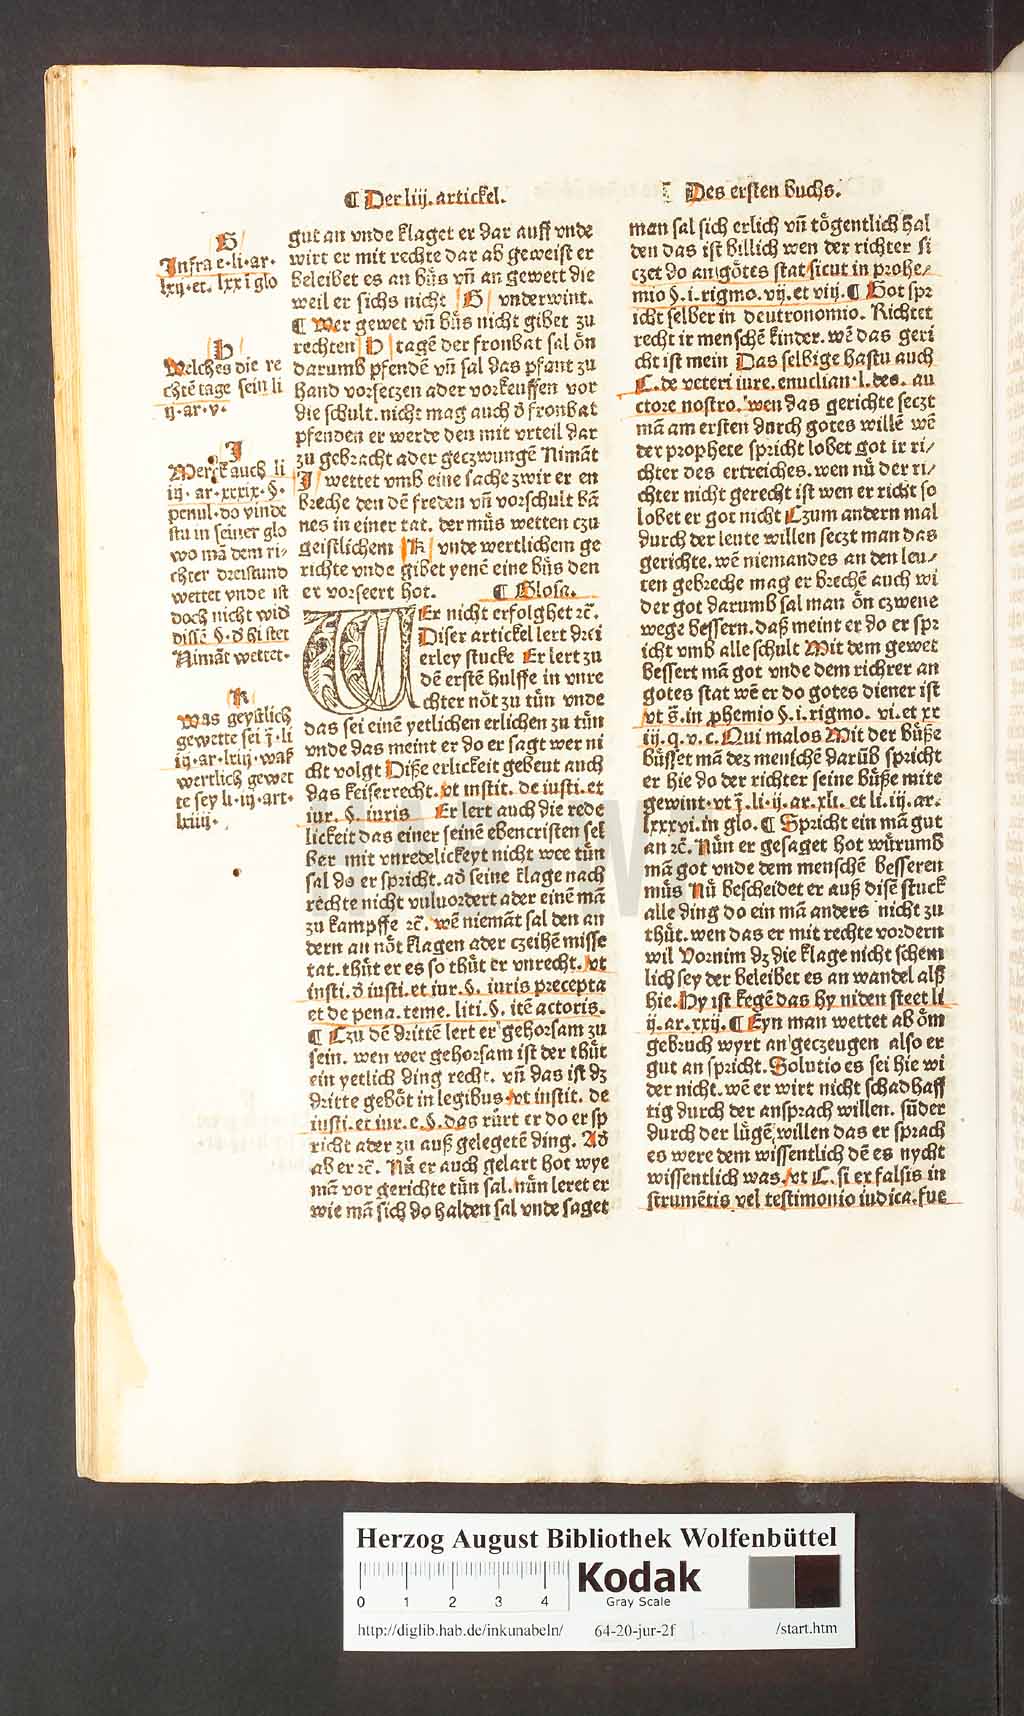 ¶ Der liij. artickel.
Des ersten buchs.
G
Infra e·li·ar·
lxij·et· lxx i glo
H
Welches die re
chtē tage sein li
ij·ar·v·
I
Merck auch li
iij· ar·xxxix·§·
penul·do vinde
stu in seiner glo
wo mā dem ri-
chter dreistund
wettet vnde ist
doch nicht wid
dissē §·d̄ hi stet
Nimāt wettet·
K
Was geystlich
gewette sei j̄·li
iij·ar·lxiij·was
wertlich gewet
te sey li·iij·art·
lxiiij·
gut an vnde klaget er dar auff vnde
wirt er mit rechte dar ab geweist er
beleibet es an bůs vn̄ an gewett die
weil er sichs nicht G vnderwint.
¶ Wer gewet vn̄ bůs nicht gibet zu
rechten H tagē der fronbat sal ōn
darumb pfendē vn̄ sal das pfant zu
hand vorseczen ader vorkeuffen vor
die schult. nicht mag auch d̄ fronbat
pfenden er werde den mit vrteil dar
zu gebracht ader geczwungē Nimāt
I wettet vmb eine sache zwir er en
breche den dē freden vn̄ vorschult bā
nes in einer tat. der můs wetten czu
geistlichem K vnde wertlichem ge
richte vnde gibet yenē eine bůs den
er vorseert hot. ¶ Glosa.
WEr nicht erfolghet ꝛc̄.
Diser artickel lert drei
erley stucke Er lert zu
dē erstē hulffe in vnre
chter nōt zu tůn vnde
das sei einē yetlichen erlichen zu tůn
vnde das meint er do er sagt wer ni
cht volgt Diße erlickeit gebeut auch
das keiserrecht. vt instit. de iusti. et
iur. §. iuris Er lert auch die rede
lickeit das einer seinē ebencristen sel
ber mit vnredelickeyt nicht wee tůn
sal do er spricht. ad̄ seine klage nach
rechte nicht vuluordert ader einē mā
zu kampffe ꝛc̄. wē niemāt sal den an
dern an nōt klagen ader czeihē misse
tat. thůt er es so thůt er vnrecht. vt
insti. d̄ iusti. et iur. §. iuris precepta
et de pena. teme. liti. §. itē actoris.
¶ Czu dē drittē lert er gehorsam zu
sein. wen wer gehorsam ist der thůt
ein yetlich ding recht. vn̄ das ist dz
dritte gebōt in legibus. vt instit. de
iusti. et iur. e. §. das růrt er do er sp
richt ader zu auß gelegetē ding. Ad̄
ab er ꝛc̄. Nů er auch gelart hot wye
mā vor gerichte tůn sal. nůn leret er
wie mā sich do halden sal vnde saget
man sal sich erlich vn̄ tōgentlich hal
den das ist billich wen der richter si
czet do an gōtes stat sicut in prohe-
mio §. i. rigmo. vij. et viij. ¶ Got spr
icht selber in deutronomio. Richtet
recht ir menschē kinder. wē das geri
cht ist mein Das selbige hastu auch
C. de veteri iure. enuclian. l. des. au
ctore nostro. wen das gerichte seczt
mā am ersten durch gotes willē wē
der prophete spricht lobet got ir ri-
chter des ertreiches. wen nů der ri-
chter nicht gerecht ist wen er richt so
lobet er got nicht Czum andern mal
durch der leute willen seczt man das
gerichte. wē niemandes an den leu-
ten gebreche mag er brechē auch wi
der got darumb sal man ōn czwene
wege bessern. daß meint er do er spr
icht vmb alle schult Mit dem gewet
bessert mā got vnde dem richrer an
gotes stat wē er do gotes diener ist
vt s̄. in ꝓhemio §. i. rigmo. vi. et xx
iij. q. v. c. Qui malos Mit der bůße
bůsset mā dez menschē darūb spricht
er hie do der richter seine bůße mite
gewint. vt j̄. li. ij. ar. xli. et li. iij. ar.
lxxxvi. in glo. ¶ Spricht ein mā gut
an ꝛc̄. Nůn er gesaget hot wůrumb
mā got vnde dem menschē besseren
můs Nů bescheidet er auß disē stuck
alle ding do ein mā anders nicht zu
thůt. wen das er mit rechte vordern
wil Vornim dz die klage nicht schem
lich sey der beleibet es an wandel alß
hie. Hy ist kegē das hy niden steet li
ij. ar. xxij. ¶ Eyn man wettet ab ōm
gebruch wyrt an geczeugen also er
gut an spricht. Solutio es sei hie wi
der nicht. wē er wirt nicht schadhaff
tig durch der ansprach willen. sūder
durch der lůgē willen das er sprach
es were dem wissentlich dē es nycht
wissentlich was. vt C. si ex falsis in
strumētis vel testimonio iudica. fue
Herzog August Bibliothek Wolfenbüttel
0 1 2 3 4
Kodak
Gray Scale
http://diglib.hab.de/inkunabeln/ 64-20-jur-2f /start.htm